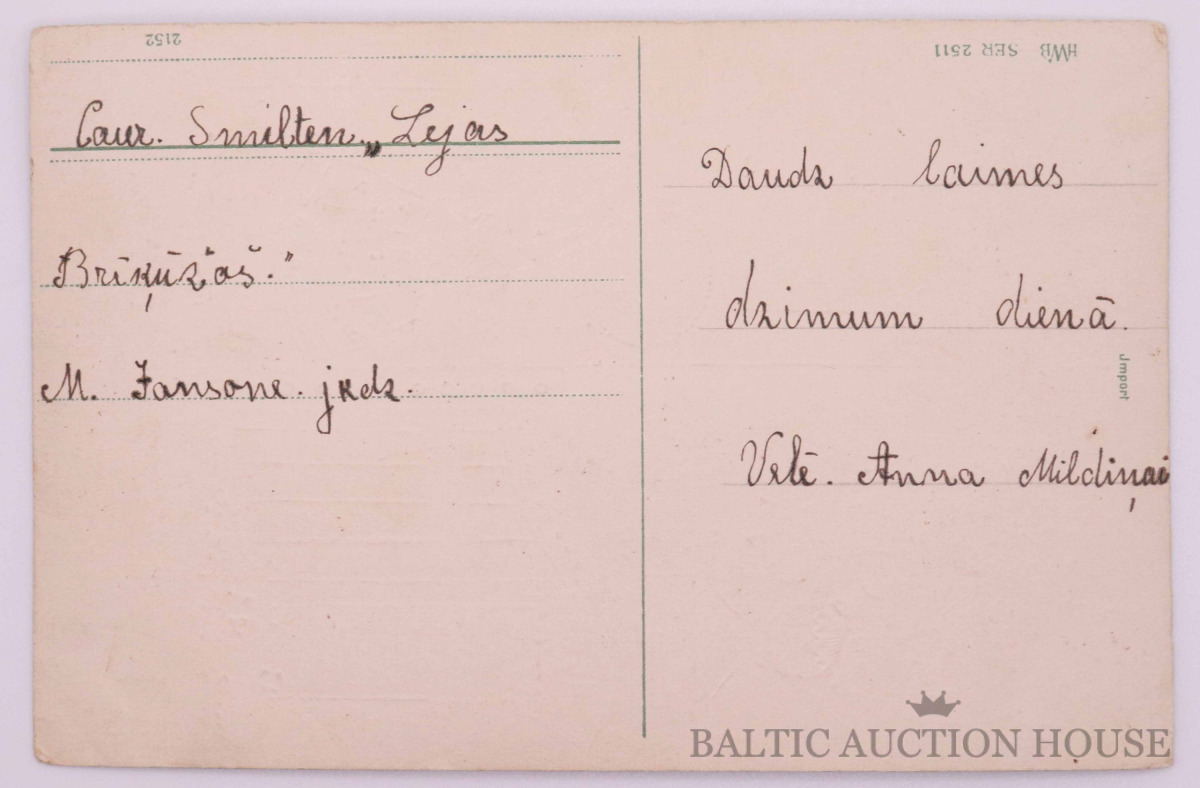 2152
Caur. Smilten. „Lejas
Brīķūžʺoš.ʺ
M. Jansone. jkdz.
HWB SER 2511
Daudz laimes
dzimum dienā.
Import
Velē. Anna Mildiņai
BALTIC AUCTION HOUSE